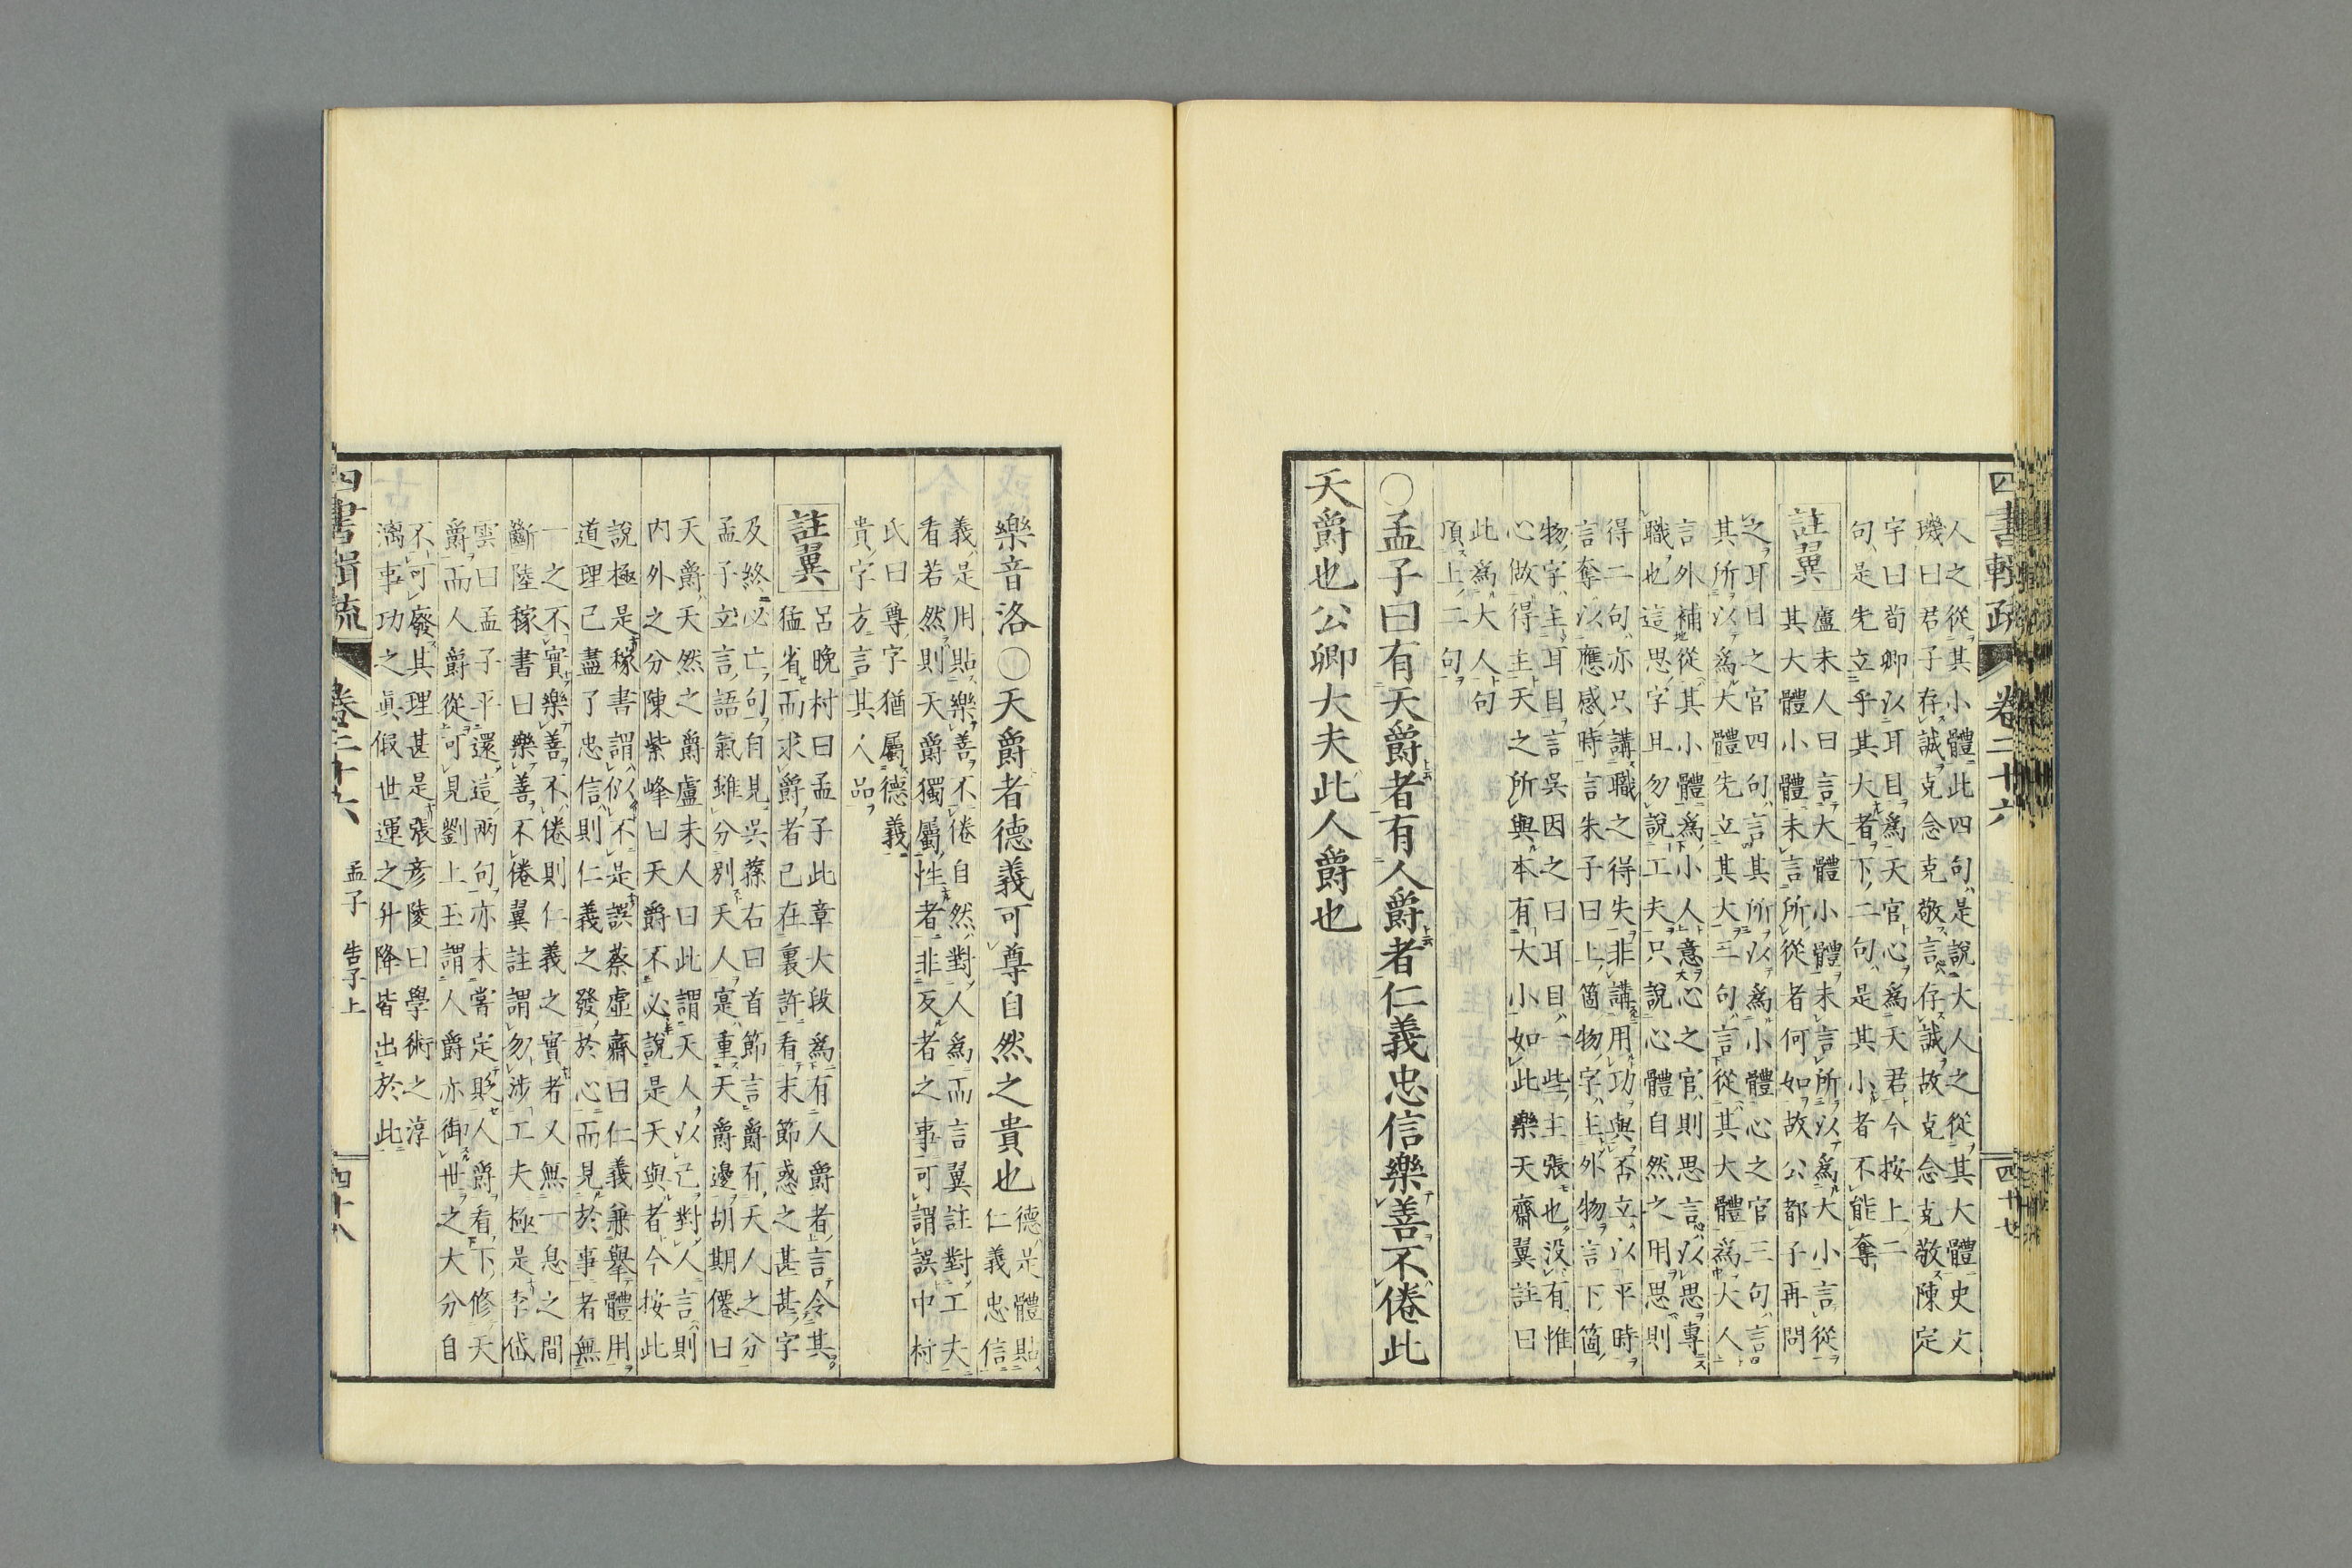 四書輯疏
卷二十六
孟子 告子上
四十七
人之從其小體此四句是說大人之從其大體史文
璣曰君子存誠克念克敬言存誠故克念克敬陳定
宇曰荀卿以耳目為天官心為天君今按上二
句是先立乎其大者下二句是其小者不能奪
註翼
盧未人曰言大體小體未言所以為大小言從
其大體小體未言所從者何如故公都子再問
之耳目之官四句言其所以為小體心之官三句言
其所以為大體先立其大三句言從其大體為大人
言外補從其小體為小人意心之官則思言以思專
職也這思字且勿說工夫只說心體自然之用思則
得二句亦只講職之得失非講用功與否立以平時
言奪以應感時言朱子曰上箇物字主外物言下箇
物字主耳目言吳因之曰耳目一些主張也没有惟
心做得主天之所與本有大小如此樂天齋翼註曰
此為大人句
頂上二句
〇孟子曰有天爵者有人爵者仁義忠信樂善不倦此
天爵也公卿大夫此人爵也
樂音洛〇天爵者德義可尊自然之貴也
德是體貼
仁義忠信
義是用貼樂善不倦自然對人為而言翼註對工夫
看若然則天爵獨屬性者非反者之事可謂誤中村
氏曰尊字猶屬德義
貴字方言其人品
註翼
呂晚村曰孟子此章大段為有人爵者言令其
猛省而求爵者已在裏許看末節惑之甚甚字
及終必亡句自見吳蓀右曰首節言爵有天人之分
孟子立言語氣雖分別天人寔重天爵邊胡期僊曰
天爵天然之爵盧未人曰此謂天人以己對人言則
內外之分陳紫峰曰天爵不必說是天與者今按此
說極是稼書謂似不是誤蔡虛齋曰仁義兼舉體用
道理已盡了忠信則仁義之發於心而見於事者無
一之不實樂善不倦則仁義之實者又無一息之間
斷陸稼書曰樂善不倦翼註謂勿涉工夫極是李岱
雲曰孟子平還這兩句亦未嘗定貶人爵看下修天
爵而人爵從可見劉上玉謂人爵亦御世之大分自
不可廢其理甚是張彦陵曰學術之淳
漓事功之眞假世運之升降皆出於此
四書輯疏
卷二十六
孟子 告子上
四十八